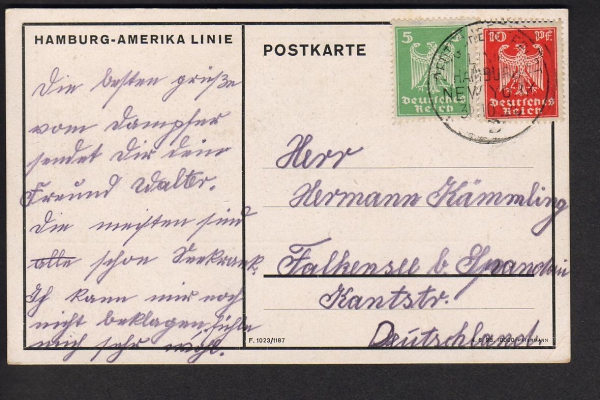 HAMBURG-AMERIKA LINIE
Die besten grüße
vom Dampfer
sendet Dir dein
Freund Walter.
Die meisten sind
alle schon Seekrank.
Ich kann mir noch
nicht beklagen, fühle
mich sehr wohl.
F. 1023/1187
POSTKARTE
5
Deutsches
Reich
10 Pf
Deutsches
Reich
HAMBURG
NEW YORK
Herr
Hermann Kämmling
Falkensee b. Spandau
Kantstr.
Deutschland